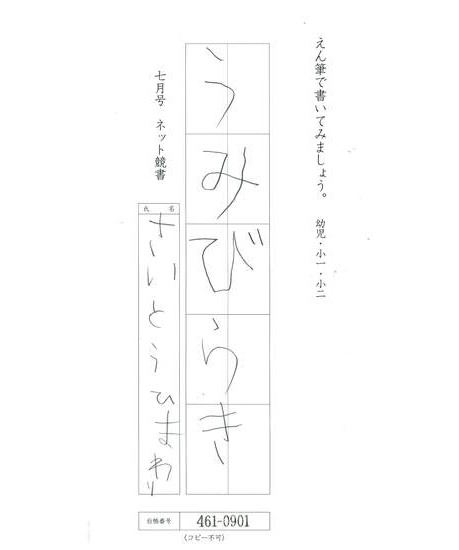 えん筆で書いてみましょう。 幼児・小一・小二
うみびらき
七月号 ネット競書
氏名
さいとうひまわり
台帳番号 461-0901
(コピー不可)